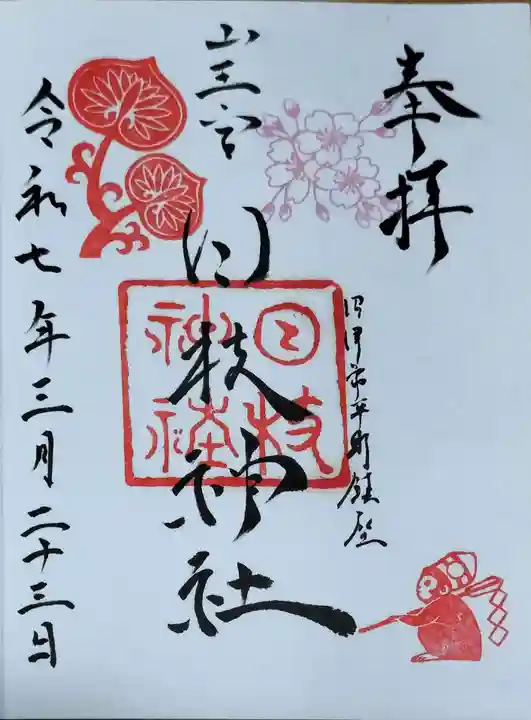 奉拝
沼津市平町鎮座
山王宮
日枝神社
日枝
神社
令和七年三月二十三日